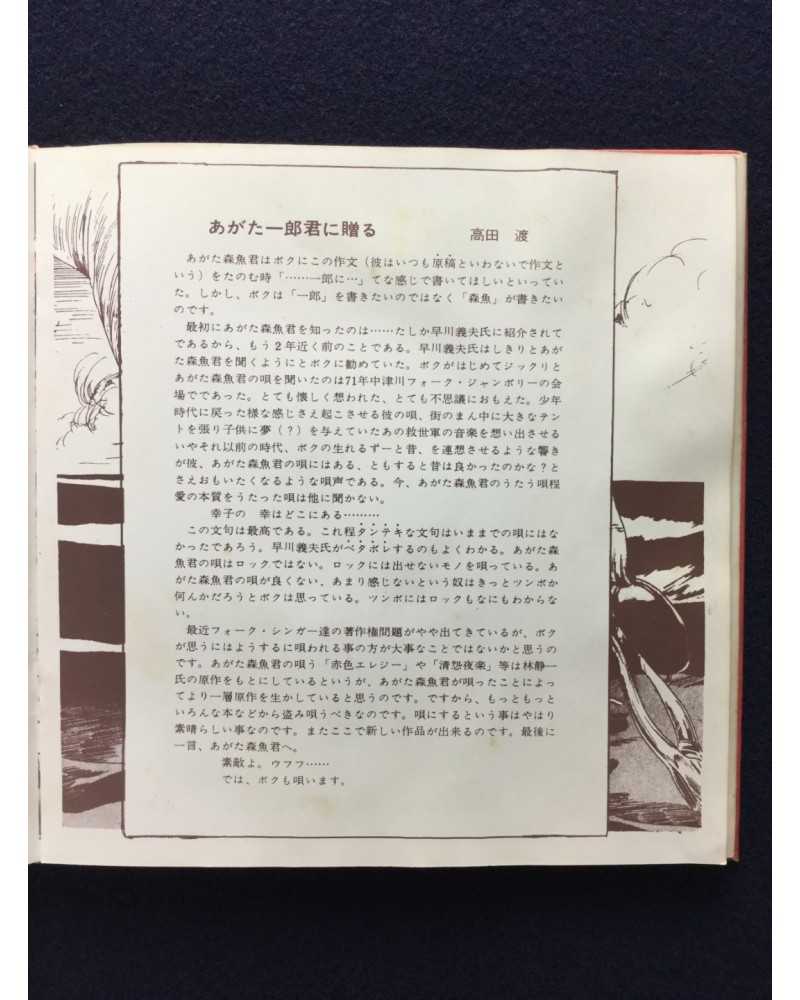 あがた一郎君に贈る　高田　渡
あがた森魚君はボクにこの作文（彼はいつも原稿といわないで作文と
いう）をたのむ時「……一郎に…」てな感じで書いてほしいといってい
た。しかし、ボクは「一郎」を書きたいのではなく「森魚」が書きたい
のです。
最初にあがた森魚君を知ったのは……たしか早川義夫氏に紹介されて
であるから、もう2年近く前のことである。早川義夫氏はしきりとあが
た森魚君を聞くようにとボクに勧めていた。ボクがはじめてジックリと
あがた森魚君の唄を聞いたのは71年中津川フォーク・ジャンボリーの会
場でであった。とても懐しく想われた、とても不思議におもえた。少年
時代に戻った様な感じさえ起こさせる彼の唄、街のまん中に大きなテン
トを張り子供に夢（？）を与えていたあの救世軍の音楽を想い出させる
いやそれ以前の時代、ボクの生れるずーと昔、を連想させるような響き
が彼、あがた森魚君の唄にはある、ともすると昔は良かったのかな？と
さえおもいたくなるような唄声である。今、あがた森魚君のうたう唄程
愛の本質をうたった唄は他に聞かない。
幸子の　幸はどこにある………
この文句は最高である。これ程タンテキな文句はいままでの唄にはな
かったであろう。早川義夫氏がベタボレするのもよくわかる。あがた森
魚君の唄はロックではない。ロックには出せないモノを唄っている。あ
がた森魚君の唄が良くない、あまり感じないという奴はきっとツンボか
何んかだろうとボクは思っている。ツンボにはロックもなにもわからな
い。
最近フォーク・シンガー達の著作権問題がやや出てきているが、ボク
が思うにはようするに唄われる事の方が大事なことではないかと思うの
です。あがた森魚君の唄う「赤色エレジー」や「清怨夜楽」等は林静一
氏の原作をもとにしているというが、あがた森魚君が唄ったことによっ
てより一層原作を生かしていると思うのです。ですから、もっともっと
いろんな本などから盗み唄うべきなのです。唄にするという事はやはり
素晴らしい事なのです。またここで新しい作品が出来るのです。最後に
一言、あがた森魚君へ。
素敵よ。ウフフ……
では、ボクも唄います。